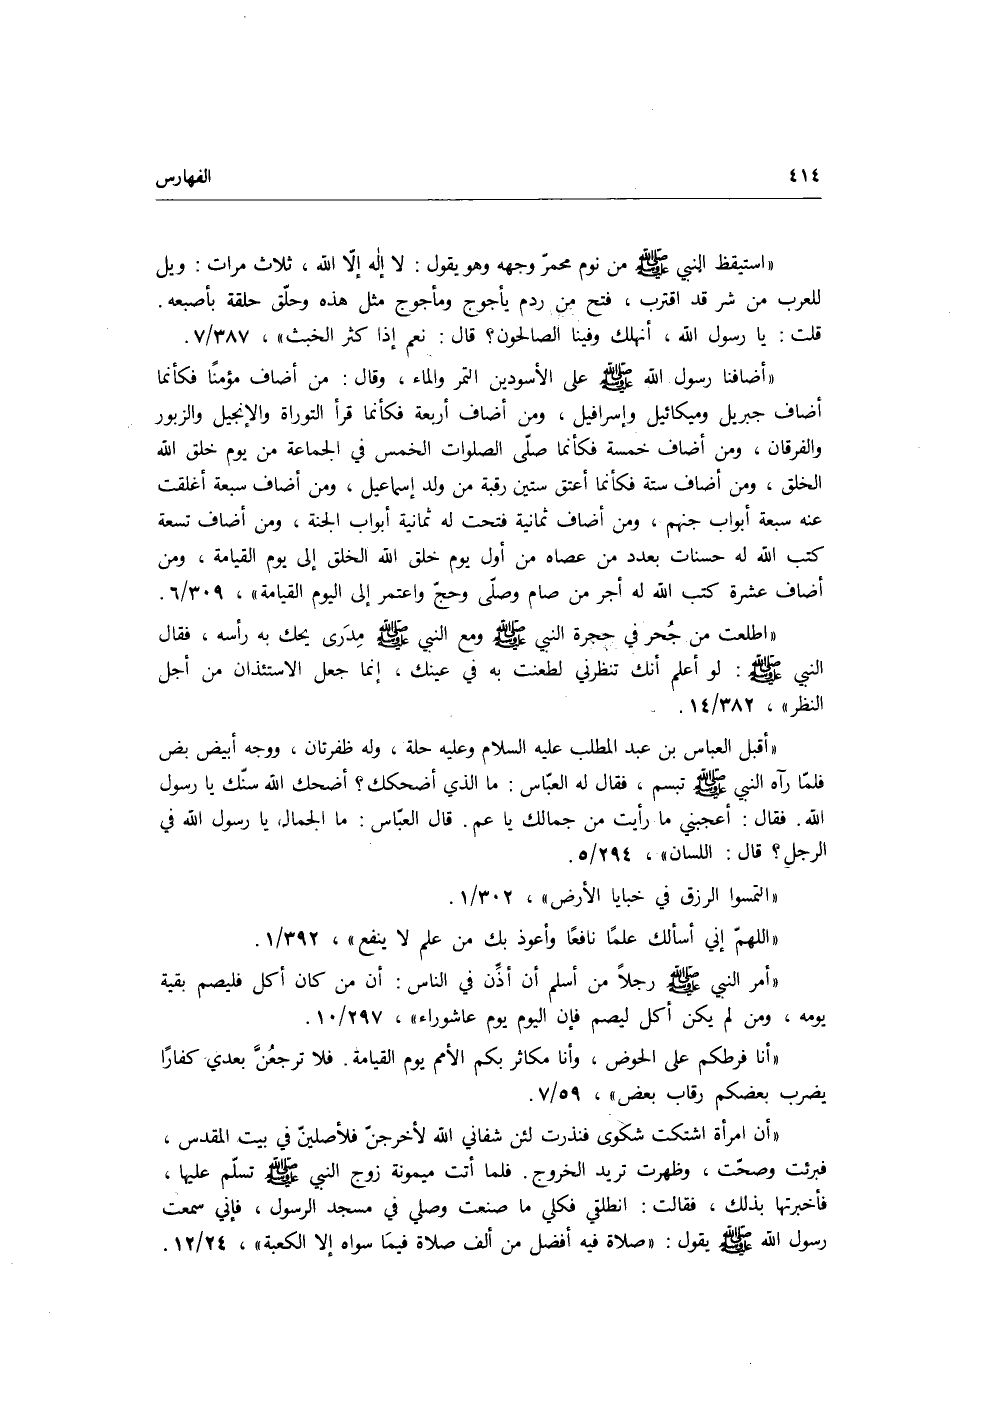 ٤١٤ الفهارس
«استيقظ النبي ﷺ من نوم محمرّ وجهه وهو يقول : لا إلٰه إلّا الله ، ثلاث مرات : ويل
للعرب من شر قد اقترب ، فتح من ردم يأجوج ومأجوج مثل هذه وحلّق حلقة بأصبعه .
قلت : يا رسول الله ، أنهلك وفينا الصالحون؟ قال : نعم إذا كثر الخبث» ، ٧/٣٨٧ .
«أضافنا رسول الله ﷺ على الأسودين التمر والماء ، وقال : من أضاف مؤمنًا فكأنما
أضاف جبريل وميكائيل وإسرافيل ، ومن أضاف أربعة فكأنما قرأ التوراة والإنجيل والزبور
والفرقان ، ومن أضاف خمسة فكأنما صلّى الصلوات الخمس في الجماعة من يوم خلق الله
الخلق ، ومن أضاف ستة فكأنما أعتق ستين رقبة من ولد إسماعيل ، ومن أضاف سبعة أغلقت
عنه سبعة أبواب جهنم ، ومن أضاف ثمانية فتحت له ثمانية أبواب الجنة ، ومن أضاف تسعة
كتب الله له حسنات بعدد من عصاه من أول يوم خلق الله الخلق إلى يوم القيامة ، ومن
أضاف عشرة كتب الله له أجر من صام وصلّى وحجّ واعتمر إلى اليوم القيامة» ، ٦/٣٠٩ .
«اطلعت من جُحر في حجرة النبي ﷺ ومع النبي ﷺ مِدَرَى يحك به رأسه ، فقال
النبي ﷺ : لو أعلم أنك تنظرني لطعنت به في عينك ، إنما جعل الاستئذان من أجل
النظر» ، ١٤/٣٨٢ .
«أقبل العباس بن عبد المطلب عليه السلام وعليه حلة ، وله ظفرتان ، ووجه أبيض بض
فلمّا رآه النبي ﷺ تبسم ، فقال له العبّاس : ما الذي أضحكك؟ أضحك الله سنّك يا رسول
الله . فقال : أعجبني ما رأيت من جمالك يا عم . قال العبّاس : ما الجمال يا رسول الله في
الرجل؟ قال : اللسان» ، ٥/٢٩٤ .
«التمسوا الرزق في خبايا الأرض» ، ١/٣٠٢ .
«اللهمّ إني أسألك علمًا نافعًا وأعوذ بك من علم لا ينفع» ، ١/٣٩٢ .
«أمر النبي ﷺ رجلاً من أسلم أن أذِّن في الناس : أن من كان أكل فليصم بقية
يومه ، ومن لم يكن أكل ليصم فإن اليوم يوم عاشوراء» ، ١٠/٢٩٧ .
«أنا فرطكم على الحوض ، وأنا مكاثر بكم الأمم يوم القيامة . فلا ترجعُنَّ بعدي كفارًا
يضرب بعضكم رقاب بعض» ، ٧/٥٩ .
«أن امرأة اشتكت شكوى فنذرت لئن شفاني الله لأخرجنّ فلأصلينّ في بيت المقدس ،
فبرئت وصحّت ، وظهرت تريد الخروج . فلما أتت ميمونة زوج النبي ﷺ تسلّم عليها ،
فأخبرتها بذلك ، فقالت : انطلقي فكلي ما صنعت وصلي في مسجد الرسول ، فإني سمعت
رسول الله ﷺ يقول : «صلاة فيه أفضل من ألف صلاة فيمَا سواه إلا الكعبة» ، ١٢/٢٤ .